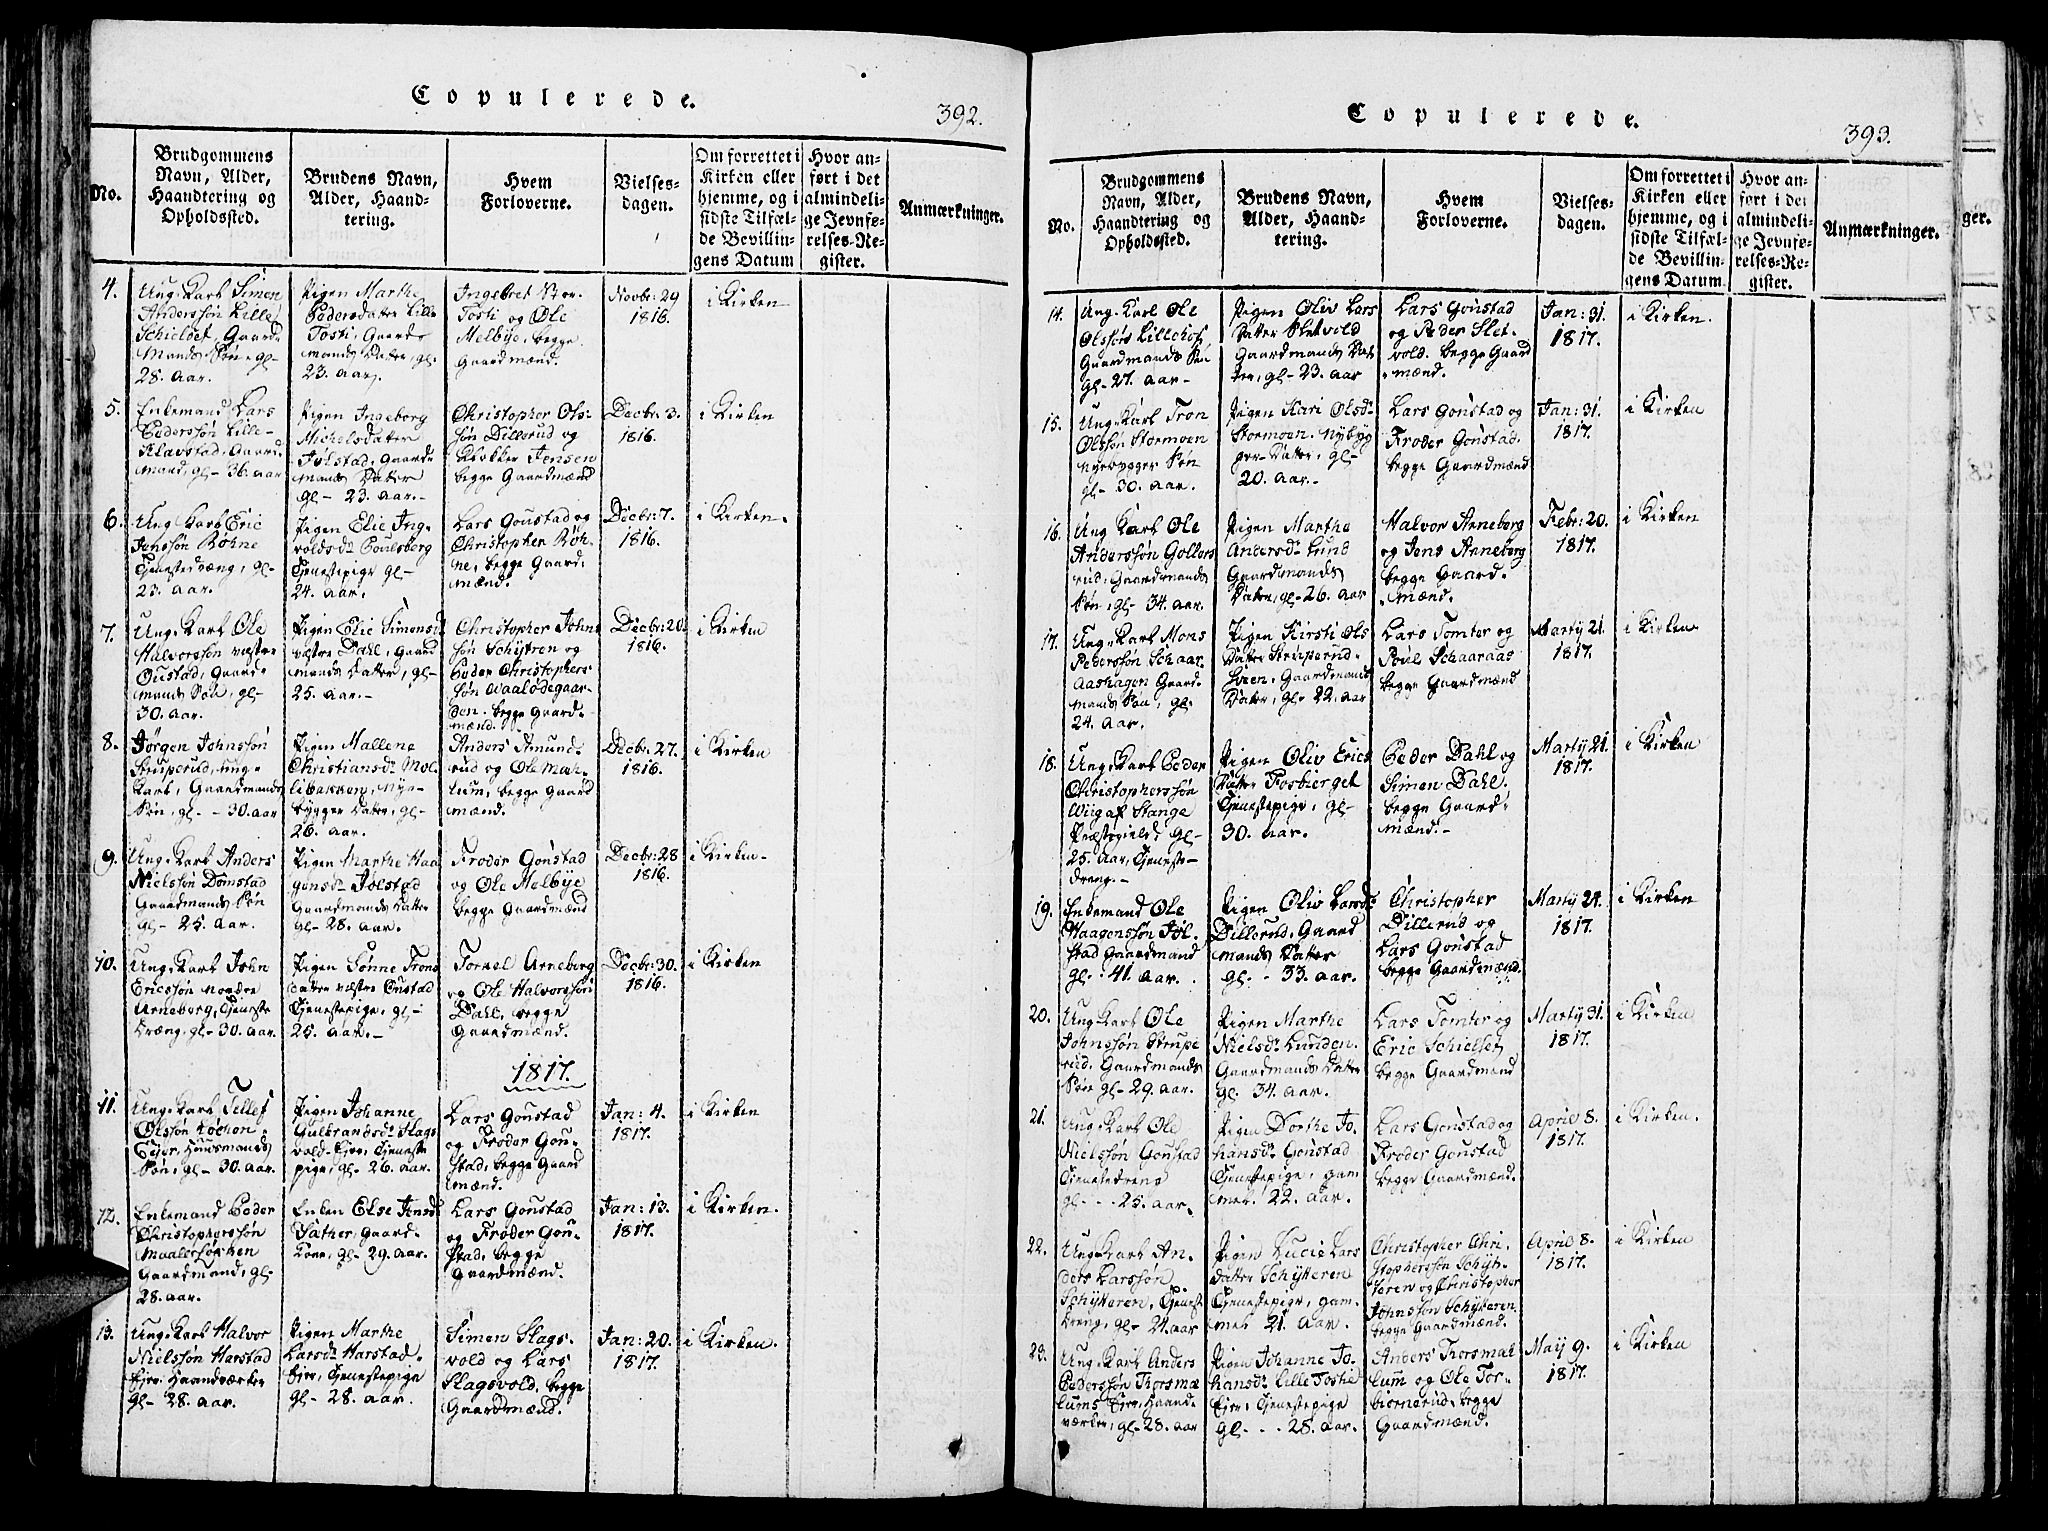 Copulerede.
392.
No.
Brudgommens
Navn, Alder,
Haandtering og
Opholdssted.
Brudens Navn,
Alder, Haand-
tering.
Hvem
Forloverne.
Vielses-
dagen.
Om forrettet i
Kirken eller
hjemme, og i
sidste Tilfæl-
de Bevillin-
gens Datum
Hvor an-
ført i det
almindeli-
ge Jevnfø-
relses-Re-
gister.
Anmærkninger.
4.
Ung-Karl Simen
Anderssøn Lille
Schieldet, Gaard-
Mands Søn, gl-
28. Aar.
Pigen Marthe
Pedersdatter Lille
Tosti, Gaard-
mands Datter, gl-
23. Aar.
Ingebret Stor
Tosti og Ole
Melbye, begge
Gaardmænd.
Novbr: 29
1816.
i Kirken
5.
Enkemand Lars
Pederssøn Lille-
Klavstad, Gaard-
mand, gl- 36. Aar
Pigen Ingeborg
Michelsdatter
Jølstad, Gaard-
mands Datter
gl- 23. Aar.-
Christopher Ols-
søn Dillerud og
Klokker Jensen
begge Gaardmænd
Decbr: 3.
1816.
i Kirken
6.
Ung Karl Eric
Jenssøn Røhne
Tjenestedræng, gl-
23. Aar.
Pigen Elie Ing-
voldsdr Poulsberg
Tjenestepige gl-
24. Aar.
Lars Goustad og
Christopher Røh-
ne, begge Gaard-
mænd.
Decbr: 7.
1816.
i Kirken.
7.
Ung-Karl Ole
Halvorssøn væstre
Oustad, Gaard-
mands Søn, gl-
30. Aar.
Pigen Elie Simensd
væstre Dahl, Gaard
mands Datter, gl-
25. Aar.-
Christopher Johns
søn Schytren og
Peder Christophers
søn Waalødegaar-
den. begge Gaard-
mænd.
Decbr: 20.
1816.
i Kirken
8.
Jørgen Johnssøn
Struperud, ung-
Karl, Gaardmands
Søn, gl- - 30. Aar
Pigen Mallene
Christiansdr Mol-
libakken, Nye-
bygger Datter, gl-
26. Aar.
Anders Amund-
rud og Ole Mæh-
lum, begge Gaard
mænd.
Decbr: 27.
1816.
i Kirken
9.
Ung-Karl Anders
Nielssøn Domstad
Gaardmands Søn
gl- 25. Aar.
Pigen Marthe Haa
gensdr Jølstad
Gaardmands Datter
gl- 28. Aar.
Froder Goustad
og Ole Melbye
begge Gaardmænd
Decbr: 28
1816.
i Kirken-
10.
Ung-Karl John
Ericssøn nordre
Arneberg, Tjeneste
dræng, gl- 30. Aar.
Pigen Sønne Trons
datter væstre Oustad
Tjenestepige, gl-
25. Aar.-
Torkel Arneberg
og Ole Halvorssøn
Dahl, begge
Gaardmænd.
Decbr: 30.
1816.
i Kirken
1817.
11.
Ung-Karl Tellef
Olssøn Løchen-
Eier, Huusmands
Søn, gl- 30. Aar.
Pigen Johanne
Gulbrandsdr Slags
vold-Eier, Tjeneste
pige, gl- 26. Aar.
Lars Goustad
og Froder Gou-
stad, begge Gaard
mænd.
Jan: 4.
1817.
i Kirken
12.
Enkemand Peder
Christopherssøn
Maalersøchen
Gaardmand, gl-
28. Aar.
Enken Else Jensd
Sather, Gaard-
Kone, gl- 29. Aar.
Lars Goustad
og Froder Gou-
stad, begge
Gaardmænd.
Jan: 13.
1817.
i Kirken.
13.
Ung-Karl Halvor
Nielssøn Harstad
Eier, Haandværker
gl- 28. Aar.
Pigen Marthe
Larsdr Harstad-
Eier, Tjenestepige
gl- 28. Aar.
Simen Slags-
vold og Lars
Slagsvold, begge
Gaardmænd.
Jan: 20.
1817.
i Kirken.
Copulerede.
393.
No.
Brudgommens
Navn, Alder,
Haandtering og
Opholdssted.
Brudens Navn,
Alder, Haand-
tering.
Hvem
Forloverne.
Vielses-
dagen.
Om forrettet i
Kirken eller
hjemme, og i
sidste Tilfæl-
de Bevillin-
gens Datum
Hvor an-
ført i det
almindeli-
ge Jevnfø-
relses-Re-
gister.
Anmærkninger.
14.
Ung-Karl Ole
Olssøn Lillehof,
Gaardmands Søn
gl- 27. Aar-
Pigen Oliv Lars
Datter Sletvold
Gaardmands Dat
ter, gl- 23. Aar
Lars Goustad
og Peder Slet-
vold. begge Gaard
mænd.
Jan: 31.
1817.
i Kirken.
15.
Ung-Karl Tron
Olssøn Stormoen
Nyebygger Søn
gl- 30. Aar.
Pigen Kari Olsdr
Stormoen. Nybyg
ger-Datter, gl-
20. Aar.-
Lars Goustad og
Froder Goustad.
begge Gaardmænd
Jan: 31.
1817.
i Kirken
16.
Ung Karl Ole
Anderssøn Gollers
rud, Gaardmands
Søn, gl- 34. Aar.
Pigen Marthe
Andersdr Lund
Gaardmands
Datter, gl- 26. Aar
Halvor Arneberg
og Jens Arneberg
begge Gaard-
mænd.
Febr: 20.
1817.
i Kirken
17.
Ung-Karl Mons
Pederssøn Schaar
Aashagen Gaard-
mands Søn, gl-
24. Aar.
Pigen Kirsti Ols
Datter Struperud-
Eier, Gaardmands
Datter, gl- 22. Aar
Lars Tomter og
Poul Schaaraas
begge Gaardmænd
Marty 21.
1817.
i Kirken
18.
Ung-Karl Peder
Christopherssøn
Wiig af Stange
Præstegield, gl-
25. Aar, Tjeneste-
dreng.-
Pigen Oliv Erics
Datter Fosberget
Tjenestepige, gl-
30. Aar.
Peder Dahl og
Simen Dahl.
begge Gaard-
mænd.-
Marty 21.
1817.
i Kirken
19.
Enkemand Ole
Haagenssøn Jøl-
stad Gaardmand
gl. - 41. Aar.
Pigen Oliv Larsdr
Dillerud, Gaard
mands Datter
gl. - 33. Aar.
Christopher
Dillerud og
Lars Goustad
begge Gaardmænd.
Marty 24.
1817.
i Kirken
20.
Ung-Karl Ole
Johnssøn Strupe
rud, Gaardmands
Søn gl- 29. Aar.
Pigen Marthe
Nielsdr Lunden.
Gaardmands Datter
gl. 34. Aar.
Lars Tomter og
Eric Schielset
begge Gaardmænd
Marty 31.
1817.
i Kirken
21.
Ung-Karl Ole
Nielssøn Goustad
Tjenestedreng
gl- - - 25. Aar.
Pigen Dorthe Jo-
hansdr Goustad
Tjenestepige, gam
mel 22. Aar.
Lars Goustad og
Froder Goustad
begge Gaardmænd.
April 8.
1817.
i Kirken.
22.
Ung-Karl An-
ders Larssøn
Schytteren, Tjeneste
dreng, gl- 24. Aar
Pigen Lucie Lars
Datter Schytteren
Tjenestepige, gam-
mel 21. Aar.
Christopher Chri-
stopherssøn Schyt-
teren og Christopher
Johnssøn Schytteren
begge Gaardmænd.
April 8.
1817.
i Kirken
23.
Ung-Karl Anders
Pederssøn Thorsmæ
lums Eier, Haand-
værker, gl- 28. Aar
Pigen Johanne Jo-
hansdr Lille Toshie
Eier, Tjenestepige
gl. - - - 28. Aar.
Anders Thorsmæl
lum og Ole Tor-
biørnerud, begge
Gaardmænd.
May 9.
1817.
i Kirken
ger.